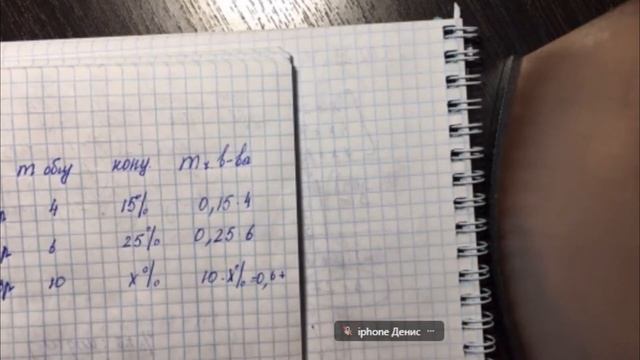 m общ конц m ч в-ва
р 4 15% 0,15·4
р 6 25% 0,25 6
р 10 x% 10·x%=0,6+
iphone Денис ...